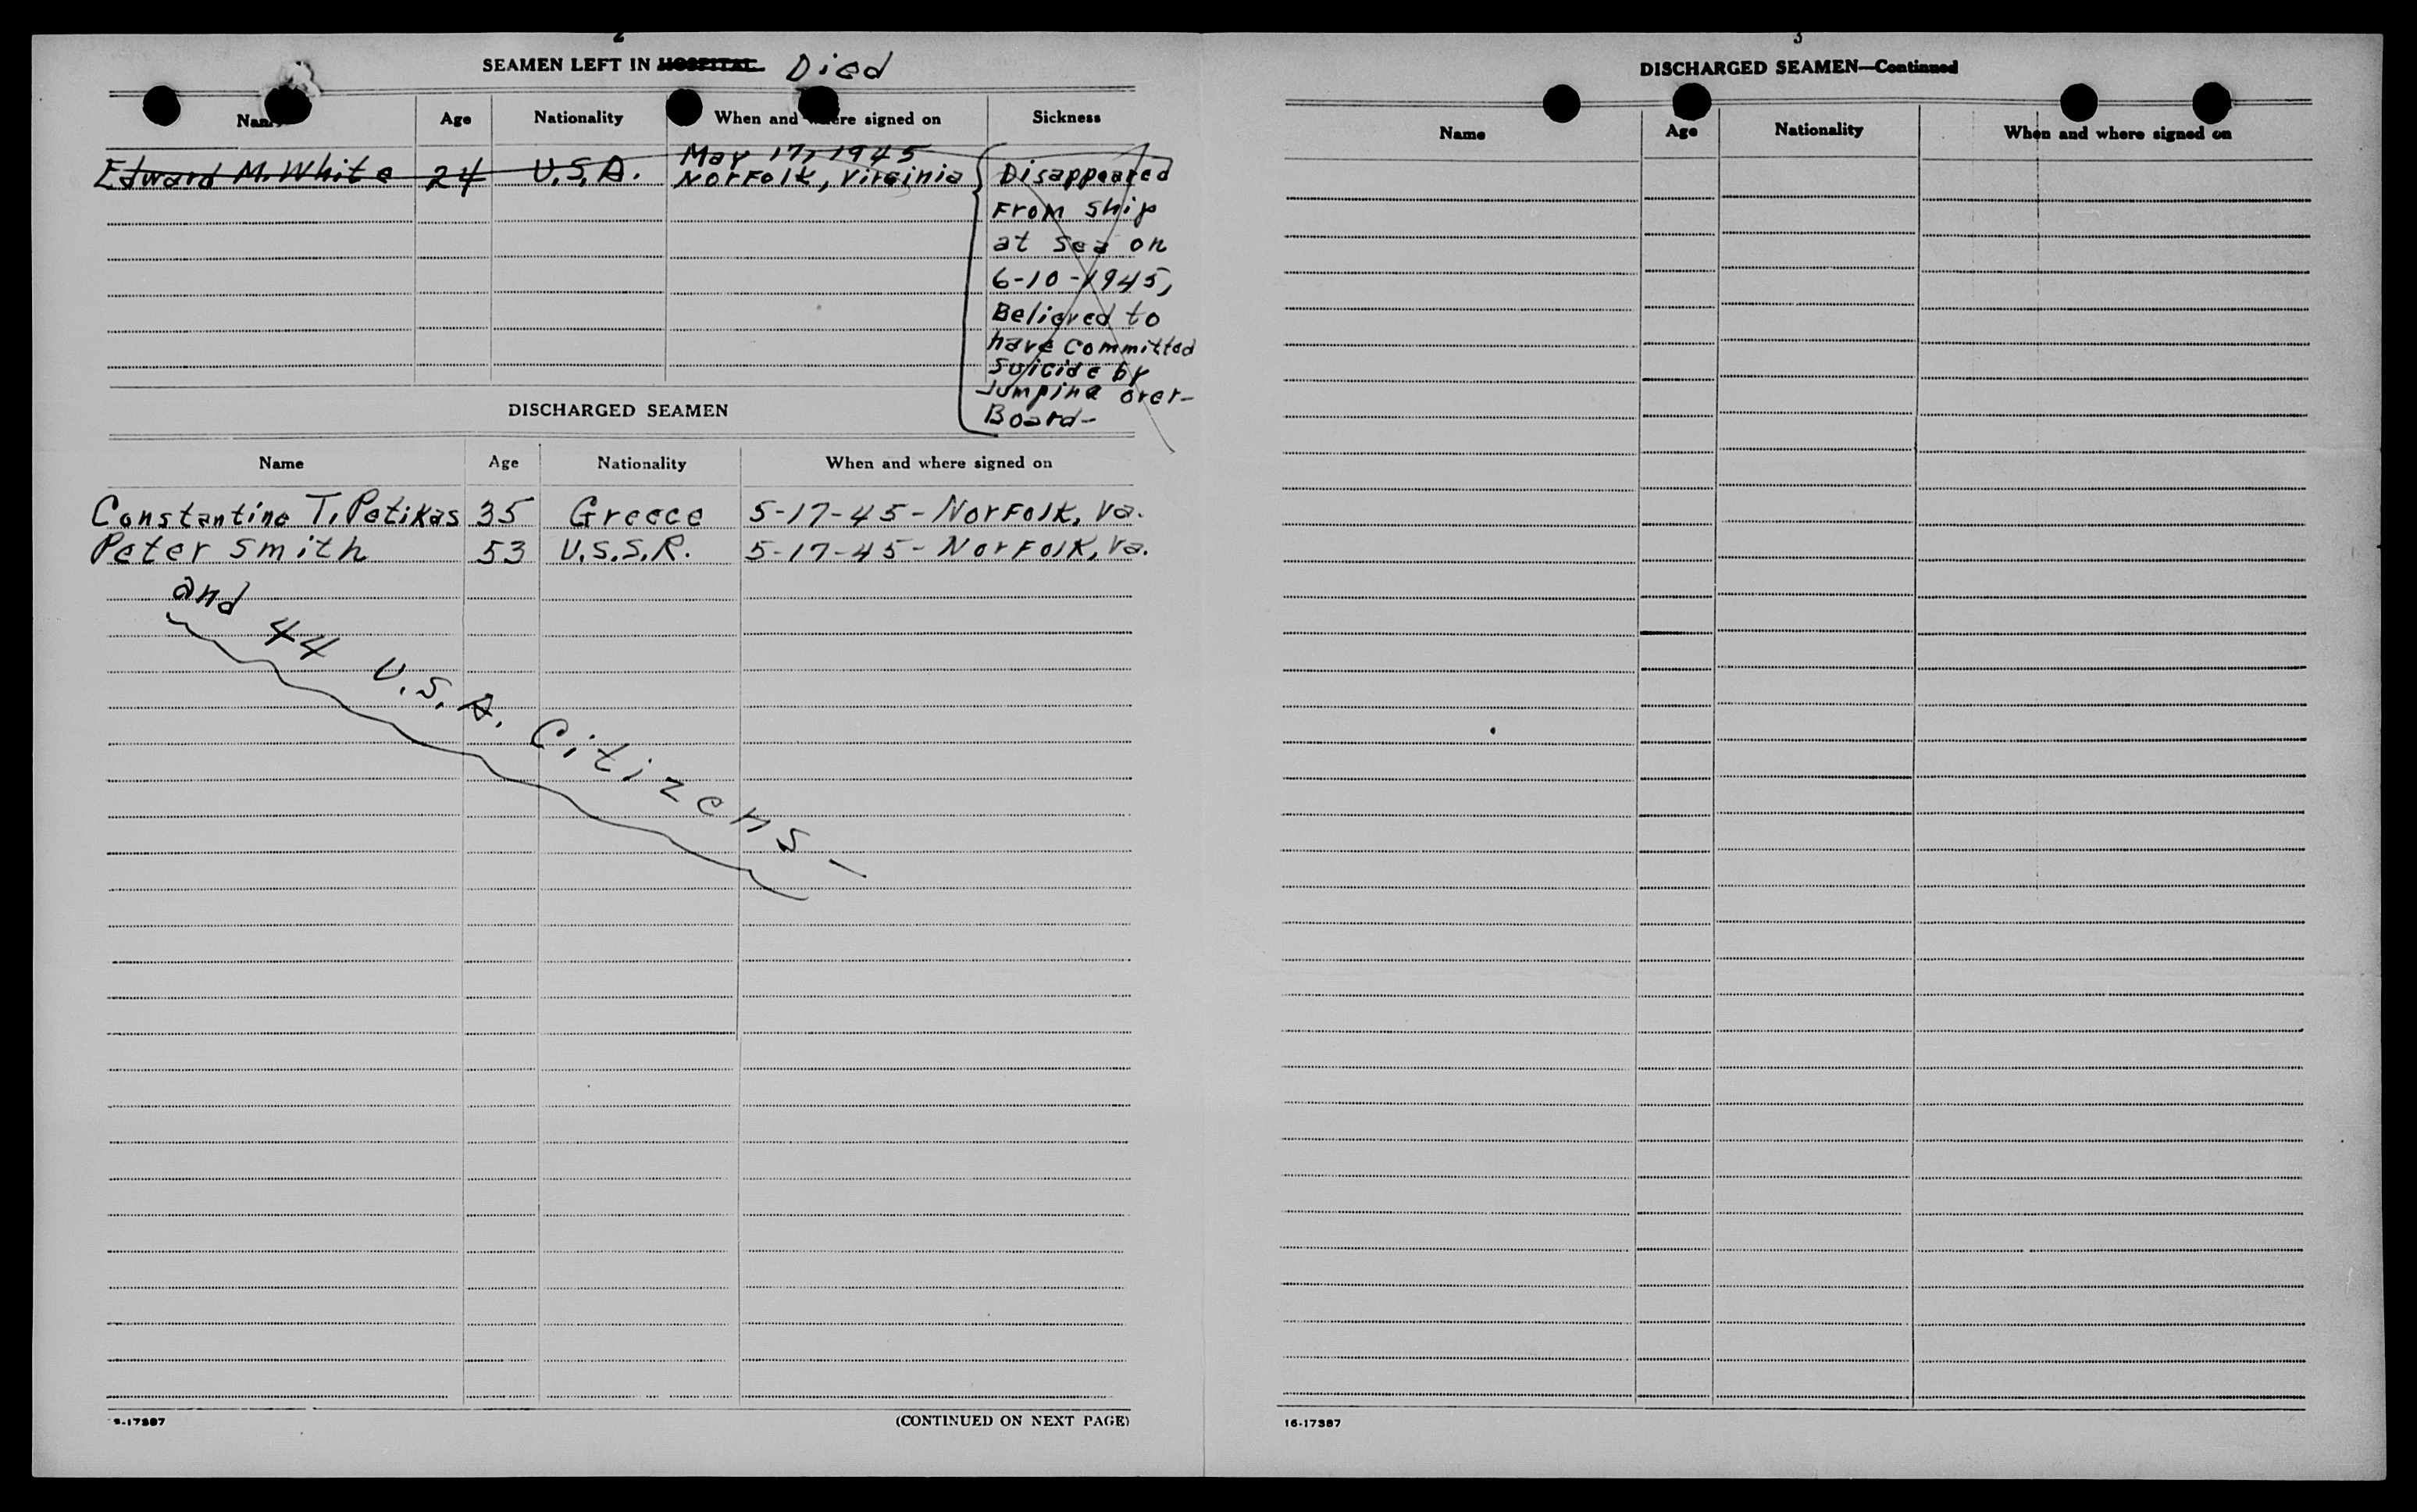 2
SEAMEN LEFT IN HOSPITAL Died
Name Age Nationality When and where signed on Sickness
May 17, 1945
Edward M. White 24 U.S.A. Norfolk, Virginia
Disappeared
From ship
at sea on
6-10-1945,
Believed to
have committed
suicide by
Jumping over-
Board-
DISCHARGED SEAMEN
Name Age Nationality When and where signed on
Constantine T. Petikas 35 Greece 5-17-45- Norfolk, Va.
Peter Smith 53 U.S.S.R. 5-17-45- Norfolk, Va.
and 44 U.S.A. Citizens-
(CONTINUED ON NEXT PAGE)
3
DISCHARGED SEAMEN—Continued
Name Age Nationality When and where signed on
16-17387